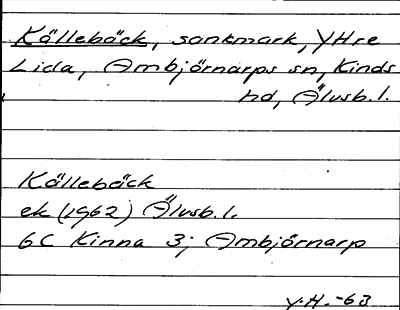 Källebäck, sankmark, YHre
Lida, Ambjörnarps sn, Kinds
hd, Älvsb.l.
Källebäck
ek (1962) Älvsb.l.
6C Kinna 3; Ambjörnarp
Y.H.-63